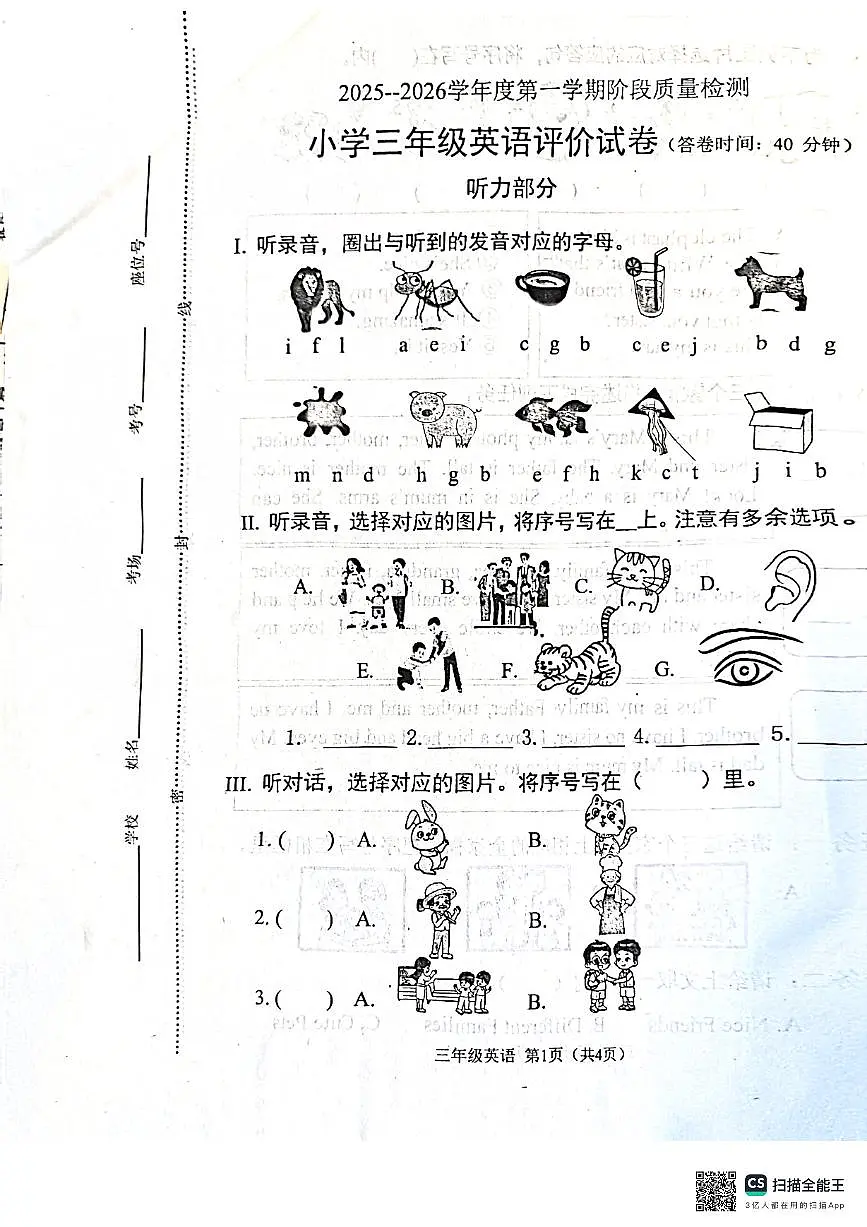 2025--2026学年度第一学期阶段质量检测
小学三年级英语评价试卷（答卷时间：40 分钟）
听力部分
I. 听录音，圈出与听到的发音对应的字母。
i f l a e i c g b c e j b d g
m n d h g b e f h k c t j i b
II. 听录音，选择对应的图片，将序号写在__上。注意有多余选项。
A. B. C. D.
E. F. G.
1.________ 2.________ 3.________ 4.________ 5.________
III. 听对话，选择对应的图片。将序号写在（ ）里。
1.( ) A. B.
2.( ) A. B.
3.( ) A. B.
三年级英语 第1页（共4页）
座位号
考号
考场
姓名
学校
线
封
密
CS 扫描全能王
3亿人都在用的扫描App